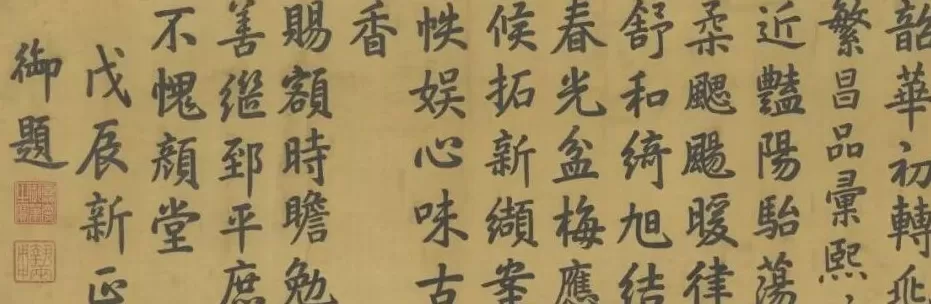 韶華初轉兆
繁昌品彙熙
近豔陽駘蕩
柔颸颺暖律
舒和綺旭結
春光盆梅應
候拓新纈案
帙娛心味古
香
賜額時瞻勉
善繼郅平庶
不愧顏堂
戊辰新正
御題